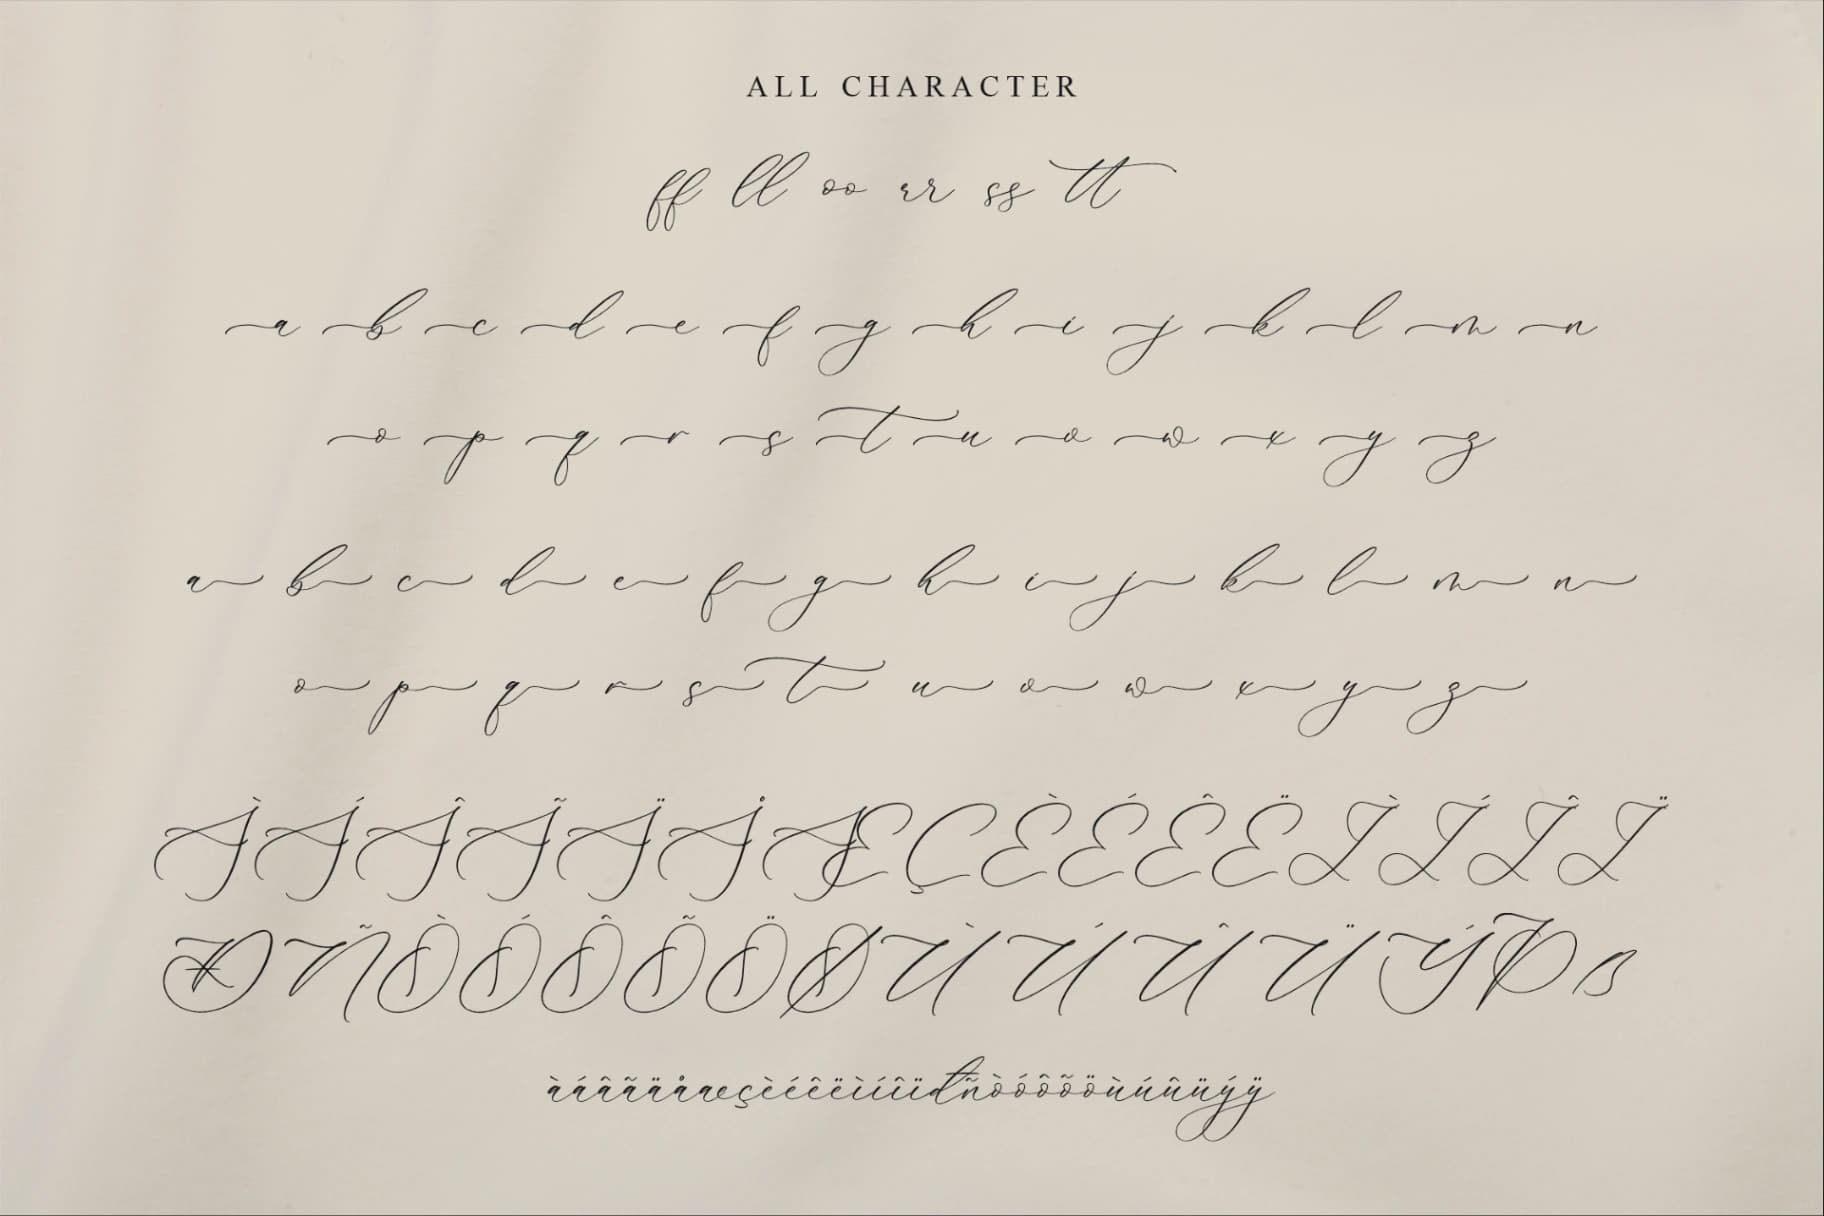 ALL CHARACTER
ff ll oo rr ss tt
a b c d e f g h i j k l m n
o p q r s t u v w x y z
a b c d e f g h i j k l m n
o p q r s t u v w x y z
ÀÁÂÃÄÅÆÇÈÉÊËÌÍÎÏ
ÐÑÒÓÔÕÖØÙÚÛÜÝÞß
àáâãäåæçèéêëìíîïðñòóôõöùúûüýÿ